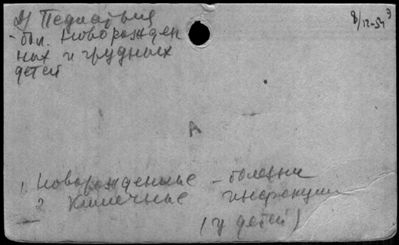 2) Педиатрия
- бол. новорожден
ных и грудных
детей
8/12-54
А
1 Новорожденные - болезни
2 Кишечные инфекции
(у детей)